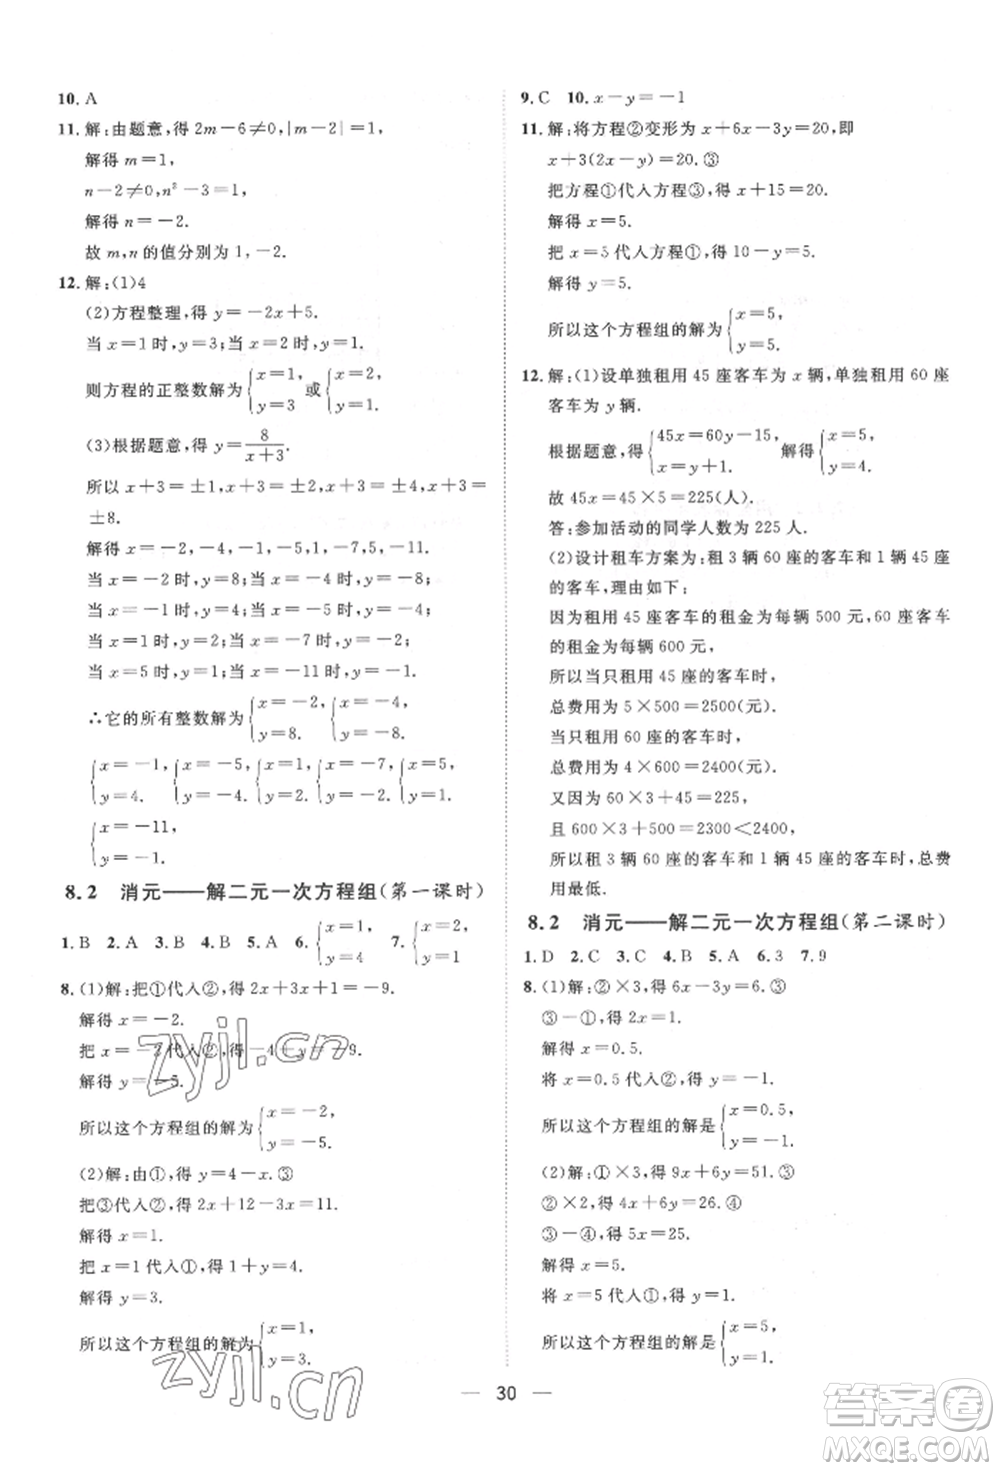 10. A
11. 解:由题意,得 2m－6≠0,|m－2|＝1,
解得 m＝1,
n－2≠0,n²－3＝1,
解得 n＝－2.
故 m,n 的值分别为 1,－2.
12. 解:(1)4
(2)方程整理,得 y＝－2x＋5.
当 x＝1 时,y＝3;当 x＝2 时,y＝1.
则方程的正整数解为{x＝1, y＝3 或{x＝2, y＝1.
(3)根据题意,得 y＝8/(x＋3).
所以 x＋3＝±1,x＋3＝±2,x＋3＝±4,x＋3＝
±8.
解得 x＝－2,－4,－1,－5,1,－7,5,－11.
当 x＝－2 时,y＝8;当 x＝－4 时,y＝－8;
当 x＝－1 时,y＝4;当 x＝－5 时,y＝－4;
当 x＝1 时,y＝2;当 x＝－7 时,y＝－2;
当 x＝5 时,y＝1;当 x＝－11 时,y＝－1.
∴它的所有整数解为{x＝－2, y＝8. {x＝－4, y＝－8.
{x＝－1, y＝4. {x＝－5, y＝－4. {x＝1, y＝2. {x＝－7, y＝－2. {x＝5, y＝1.
{x＝－11, y＝－1.
8.2 消元——解二元一次方程组(第一课时)
1. B 2. A 3. B 4. B 5. A 6. {x＝1, y＝4 7. {x＝1, y＝2
8. (1)解:把①代入②,得 2x＋3x＋1＝－9.
解得 x＝－2.
把 x＝－2 代入②,得－4＋y＝－9.
解得 y＝－5.
所以这个方程组的解为{x＝－2, y＝－5.
(2)解:由①,得 y＝4－x.③
把③代入②,得 2x＋12－3x＝11.
解得 x＝1.
把 x＝1 代入①,得 1＋y＝4.
解得 y＝3.
所以这个方程组的解为{x＝1, y＝3.
9. C 10. x－y＝－1
11. 解:将方程②变形为 x＋6x－3y＝20,即
x＋3(2x－y)＝20.③
把方程①代人方程③,得 x＋15＝20.
解得 x＝5.
把 x＝5 代人方程①,得 10－y＝5.
解得 y＝5.
所以这个方程组的解为{x＝5, y＝5.
12. 解:(1)设单独租用 45 座客车为 x 辆,单独租用 60 座
客车为 y 辆.
根据题意,得{45x＝60y－15, x＝y＋1. 解得{x＝5, y＝4.
故 45x＝45×5＝225(人).
答:参加活动的同学人数为 225 人.
(2)设计租车方案为:租 3 辆 60 座的客车和 1 辆 45 座
的客车,理由如下:
因为租用 45 座客车的租金为每辆 500 元,60 座客车
的租金为每辆 600 元.
所以当只租用 45 座的客车时,
总费用为 5×500＝2500(元).
当只租用 60 座的客车时,
总费用为 4×600＝2400(元).
又因为 60×3＋45＝225,
且 600×3＋500＝2300＜2400,
所以租 3 辆 60 座的客车和 1 辆 45 座的客车时,总费
用最低.
8.2 消元——解二元一次方程组(第二课时)
1. D 2. C 3. C 4. B 5. A 6. 3 7. 9
8. (1)解:②×3,得 6x－3y＝6.③
③－①,得 2x＝1.
解得 x＝0.5.
将 x＝0.5 代入②,得 y＝－1.
所以这个方程组的解是{x＝0.5, y＝－1.
(2)解:①×3,得 9x＋6y＝51.③
②×2,得 4x＋6y＝26.④
③－④,得 5x＝25.
解得 x＝5.
将 x＝5 代人①,得 y＝1.
所以这个方程组的解是{x＝5, y＝1.
— 30 —
zyjl.cn
zyjl.cn
答案卷
MXQE.COM